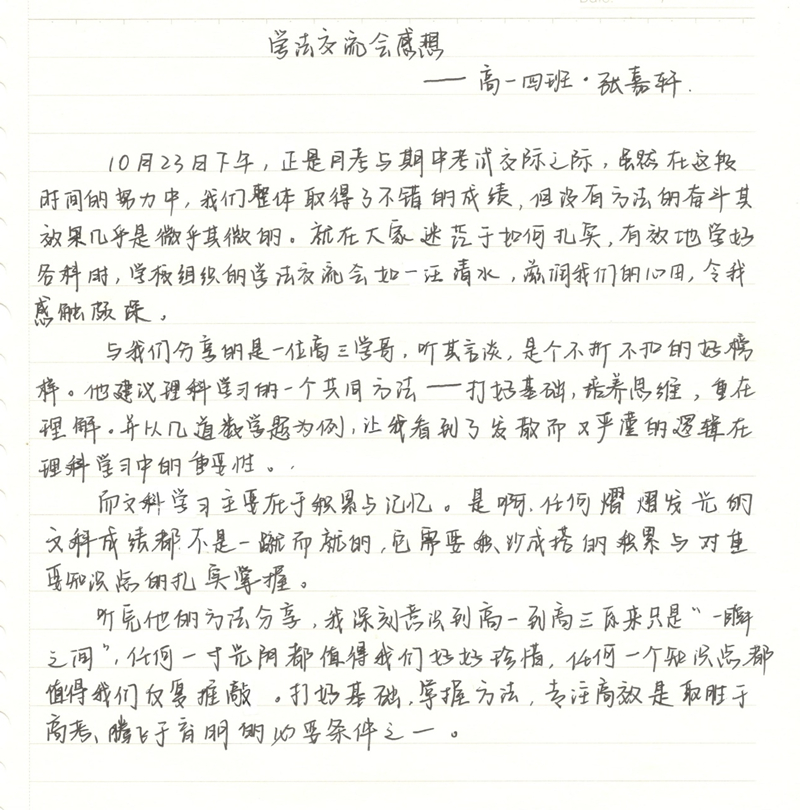 学法交流会感想
——高一四班·张嘉轩.
10月23日下午，正是月考与期中考试交际之际，虽然在这段
时间的努力中，我们整体取得了不错的成绩，但没有方法的奋斗其
效果几乎是微乎其微的。就在大家迷茫于如何扎实，有效地学好
各科时，学校组织的学法交流会如一汪清水，滋润我们的心田，令我
感触颇深。
与我们分享的是一位高三学哥，听其言谈，是个不折不扣的好榜
样。他建议理科学习的一个共同方法——打好基础，培养思维，重在
理解。并以几道数学题为例，让我看到了发散而又严谨的逻辑在
理科学习中的重要性。
而文科学习主要在于积累与记忆。是啊，任何熠熠发光的
文科成绩都不是一蹴而就的，它需要聚沙成塔的积累与对重
要知识点的扎实掌握。
听完他的方法分享，我深刻意识到高一到高三原来只是“一瞬
之间”，任何一寸光阴都值得我们好好珍惜，任何一个知识点都
值得我们反复推敲。打好基础，掌握方法，专注高效是取胜于
高考、腾飞于育明的必要条件之一。